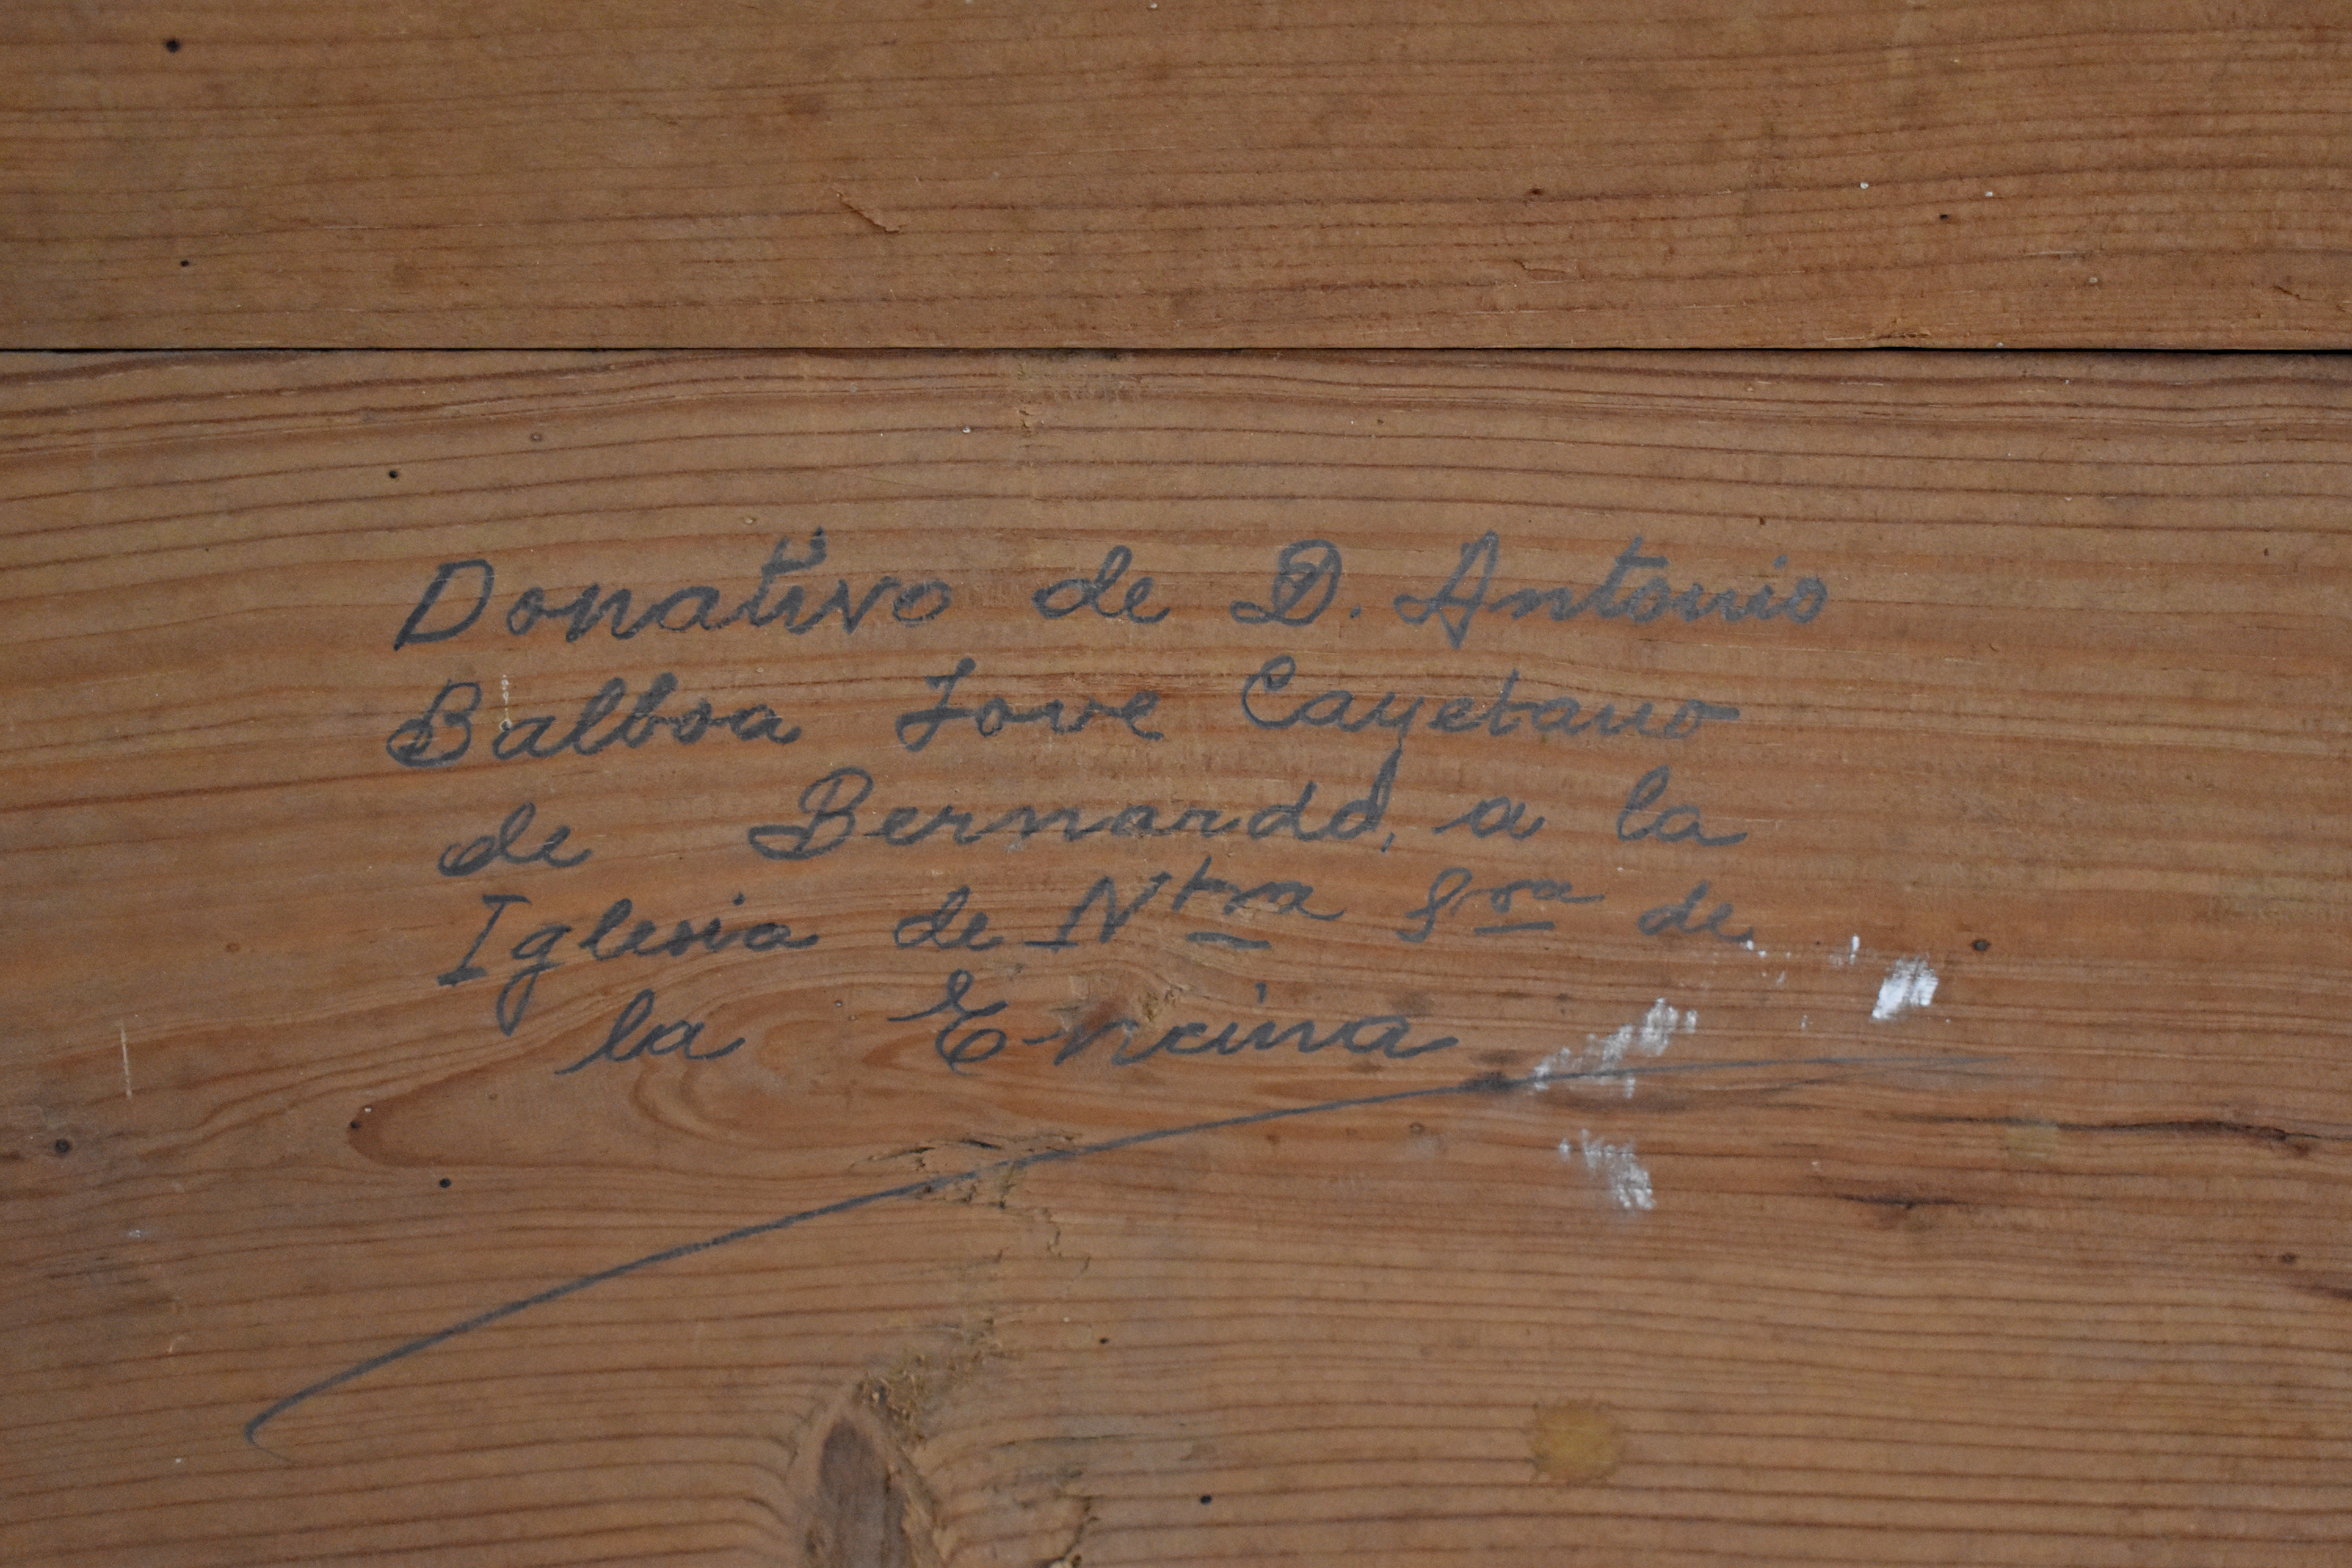 Donativo de D. Antonio
Balboa Jove Cayetano
de Bernardo, a la
Iglesia de Ntra Sra de
la Encina